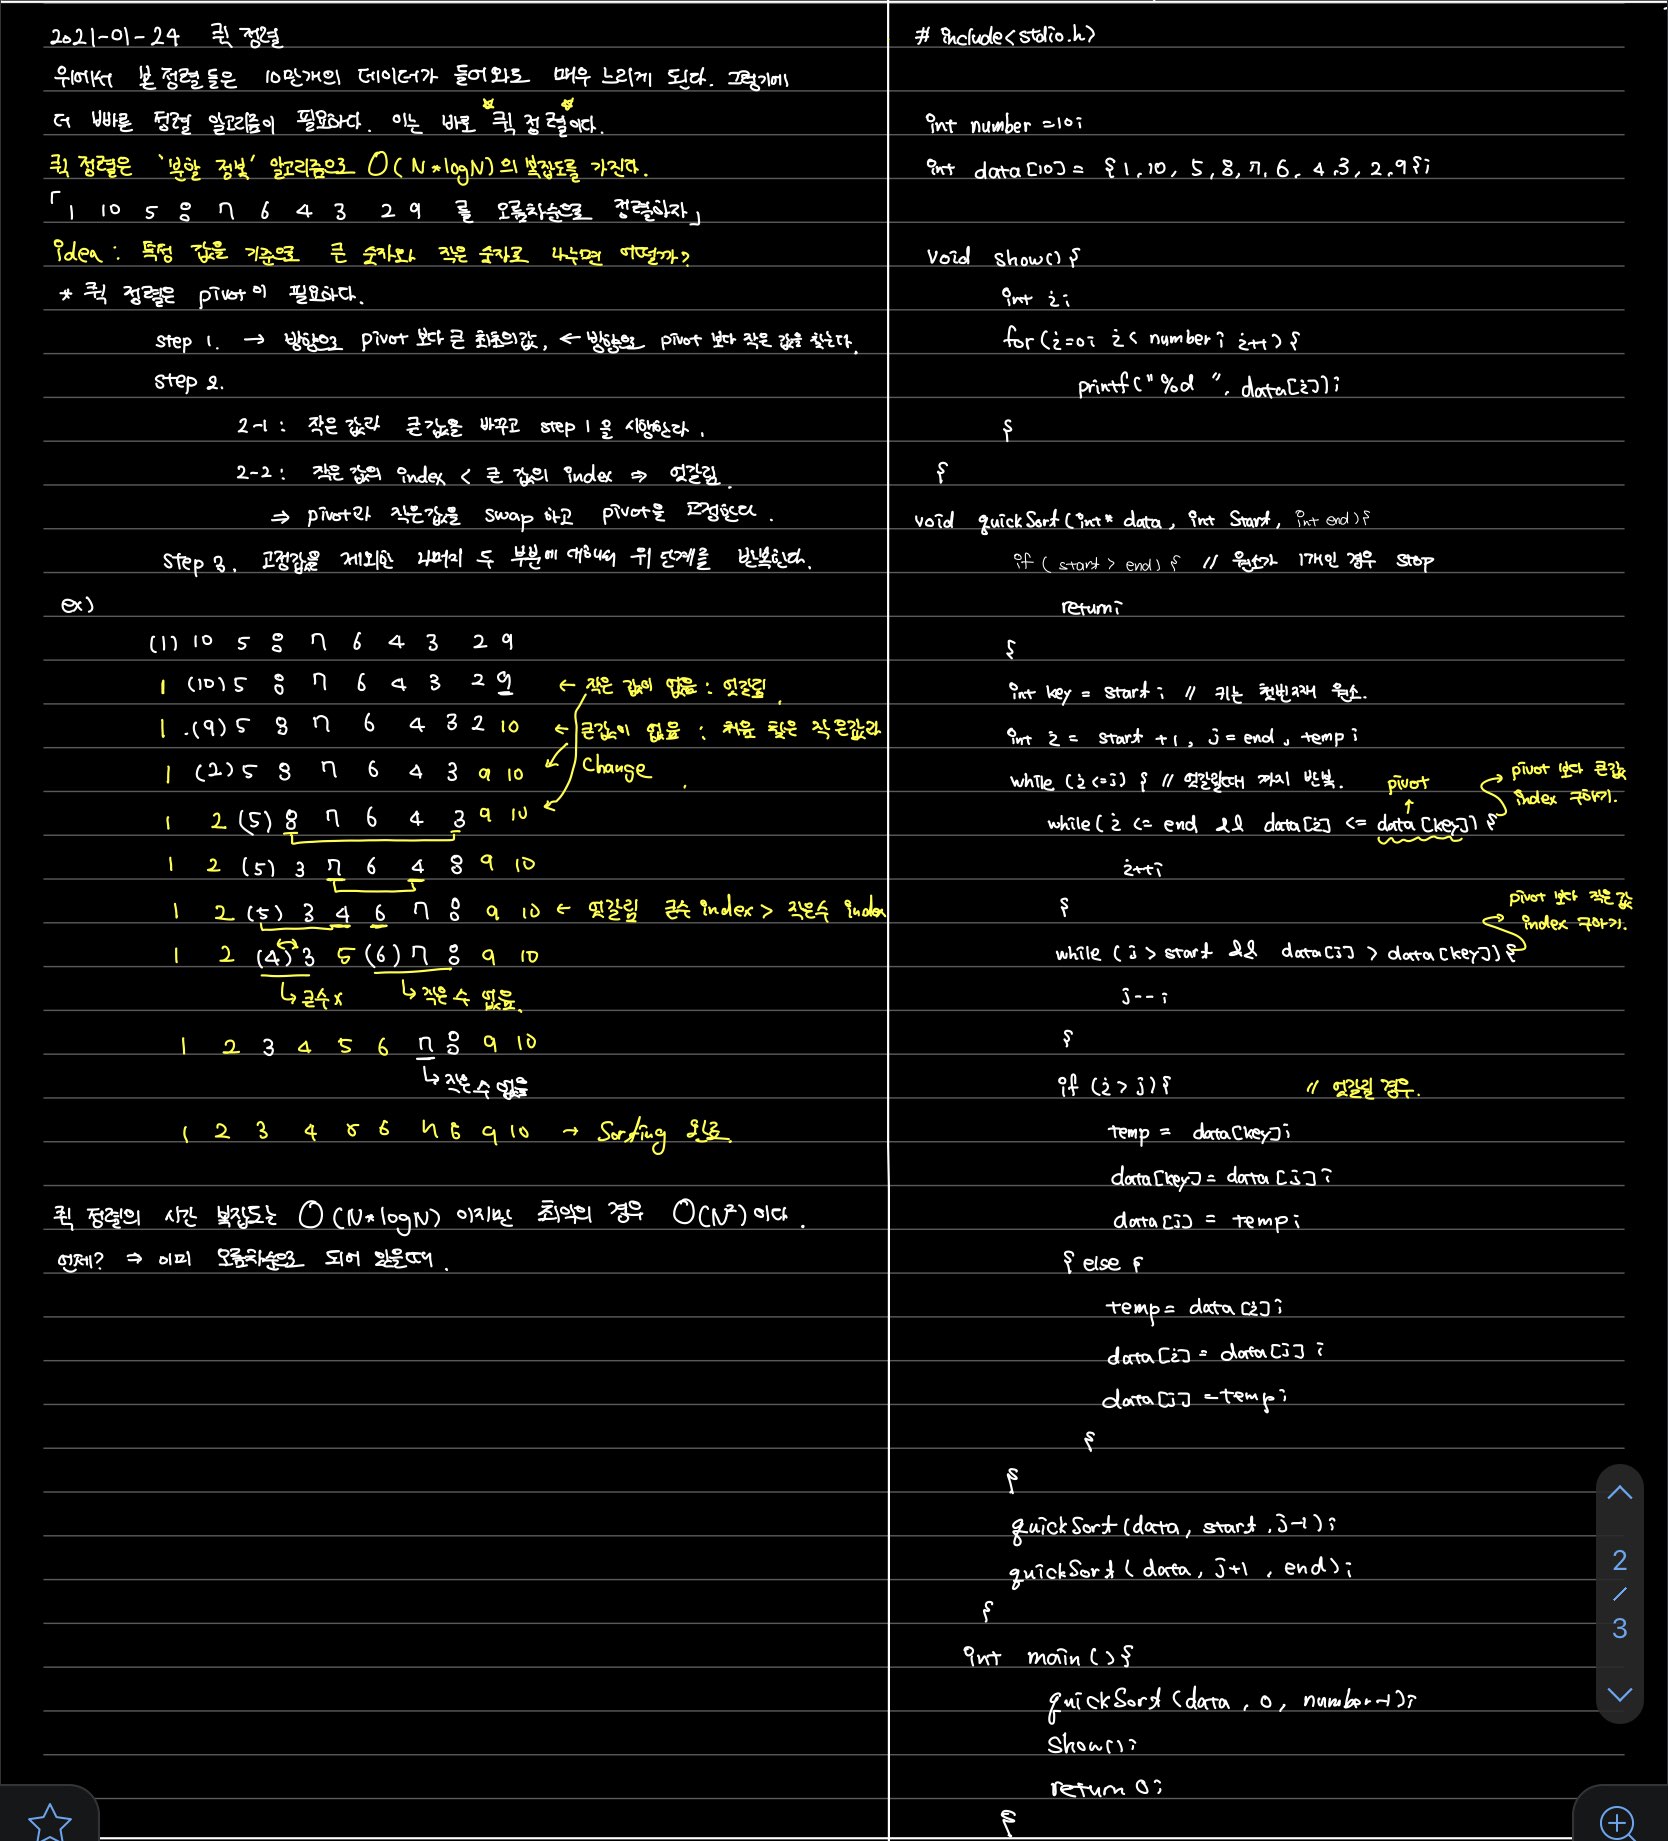 2021-01-24 퀵 정렬
위에서 본 정렬들은 10만개의 데이터가 들어와도 매우 느리게 된다. 그렇기에
더 빠른 정렬 알고리즘이 필요하다. 이는 바로 퀵 정렬이다.
퀵 정렬은 '분할 정복' 알고리즘으로 O(N*logN)의 복잡도를 가진다.
「1 10 5 8 7 6 4 3 2 9 를 오름차순으로 정렬하자」
idea : 특정 값을 기준으로 큰 숫자와 작은 숫자로 나누면 어떨까?
* 퀵 정렬은 pivot이 필요하다.
step 1. → 방향으로 pivot 보다 큰 최초의값, ← 방향으로 pivot 보다 작은 값을 찾는다.
step 2.
2-1 : 작은 값과 큰 값을 바꾸고 step 1을 시행한다.
2-2 : 작은 값의 index < 큰 값의 index ⇒ 엇갈림.
⇒ pivot과 작은값을 swap 하고 pivot을 고정한다.
step 3. 고정값을 제외한 나머지 두 부분에 대해서 위 단계를 반복한다.
ex)
(1) 10 5 8 7 6 4 3 2 9
1 (10) 5 8 7 6 4 3 2 9 ← 작은 값이 없음 : 엇갈림.
1 .(9) 5 8 7 6 4 3 2 10 ← 큰값이 없음 : 처음 찾은 작은값과
1 (2) 5 8 7 6 4 3 9 10 Change
1 2 (5) 8 7 6 4 3 9 10
1 2 (5) 3 7 6 4 8 9 10
1 2 (5) 3 4 6 7 8 9 10 ← 엇갈림 큰수 index > 작은수 index
1 2 (4) 3 5 (6) 7 8 9 10
↳ 큰수 x ↳ 작은 수 없음.
1 2 3 4 5 6 7 8 9 10
↳ 작은 수 없음
1 2 3 4 5 6 7 8 9 10 → Sorting 완료
퀵 정렬의 시간 복잡도는 O(N*logN) 이지만 최악의 경우 O(N²)이다.
언제? ⇒ 이미 오름차순으로 되어 있을때.
# include<stdio.h>
int number =10;
int data [10] = {1, 10, 5, 8, 7, 6, 4, 3, 2, 9};
void show() {
int i;
for (i=0; i< number ; i++) {
printf("%d ", data[i]);
}
}
void quickSort(int* data, int Start, int end){
if ( start > end) { // 원소가 1개인 경우 stop
return;
}
int key = start; // 키는 첫번째 원소.
int i = start +1, j = end, temp;
while (i<=j) { // 엇갈릴때 까지 반복.
pivot
pivot 보다 큰값
index 구하기.
while( i <= end && data[i] <= data[key]) {
i++;
}
pivot 보다 작은 값
index 구하기.
while (j > start && data[j] > data[key]) {
j--;
}
if (i > j) { // 엇갈릴 경우.
temp = data[key];
data[key] = data [j];
data[j] = temp;
} else {
temp = data [i];
data[i] = data[j] ;
data[j] =temp;
}
}
quickSort (data, start, j-1);
quickSort ( data, j+1, end);
}
int main () {
quickSort (data, 0, number-1);
Show();
return 0;
}
2
/
3